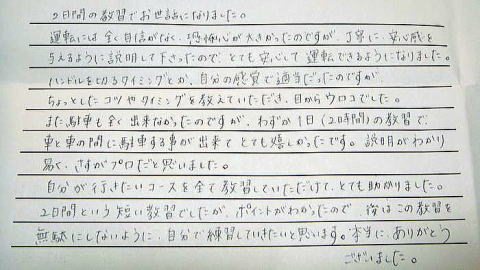 2日間の教習でお世話になりました。
運転には全く自信がなく、恐怖心が大きかったのですが、丁寧に、安心感を
与えるように説明して下さったので、とても安心して運転できるようになりました。
ハンドルを切るタイミングとか、自分の感覚で適当だったのですが、
ちょっとしたコツやタイミングを教えていただき、目からウロコでした。
また駐車も全く出来なかったのですが、わずか1日(2時間)の教習で、
車と車の間に駐車する事が出来てとても嬉しかったです。説明がわかり
易く、さすがプロだと思いました。
自分が行きたいコースを全て教習していただけて、とても助かりました。
2日間という短い教習でしたが、ポイントがわかったので、後はこの教習を
無駄にしないように、自分で練習していきたいと思います。本当に、ありがとう
ございました。